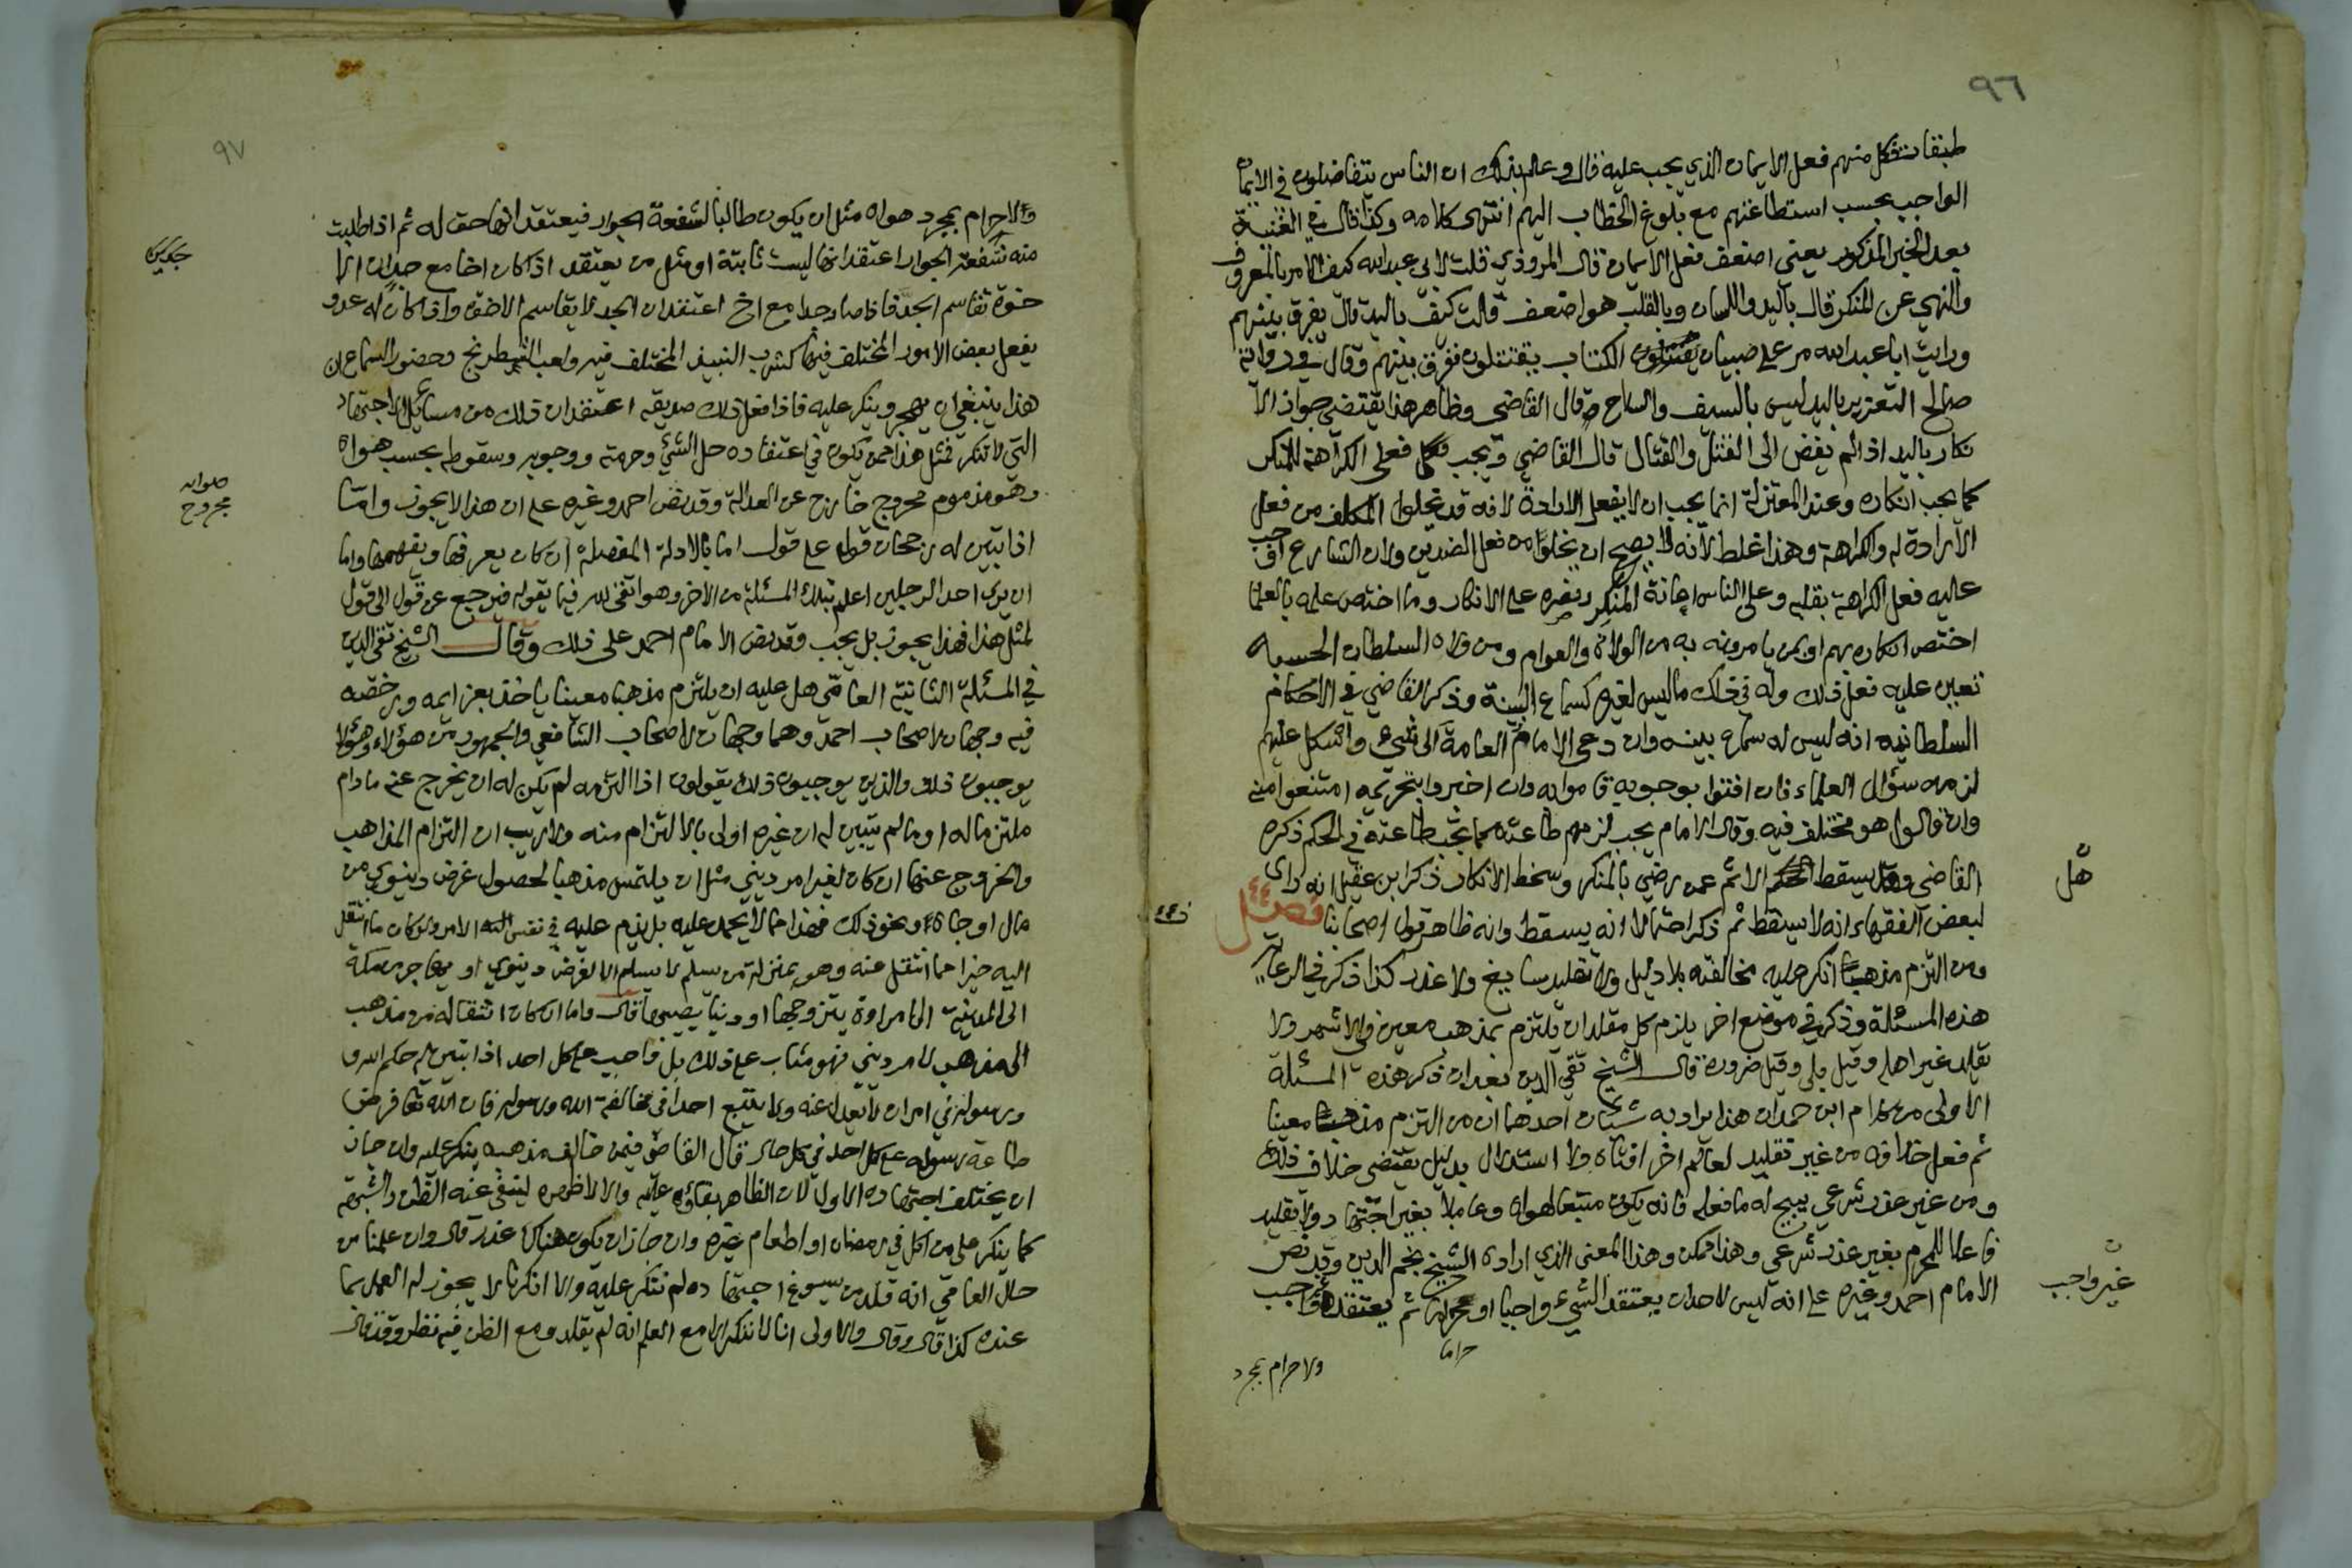 ٩٦
طبقات فكل منهم فعل الايمان الذي يجب عليه قال وعلم بذلك ان الناس يتفاضلون في الايمان
الواجب بحسب استطاعتهم مع بلوغ الخطاب اليهم انتهى كلامه وكذا قال في الغنية
بعد الخبر المذكور يعني اضعف فعل الايمان قال المروذي قلت لابي عبدالله كيف الامر بالمعروف
والنهي عن المنكر قال باليد واللسان وبالقلب هو اضعف قلت كيف باليد قال يفرق بينهم
ورايت ابا عبدالله مر على صبيان الكتاب يقتتلون ففرق بينهم وقال في رواية
صالح التغيير باليد ليس بالسيف والسلاح قال القاضي وظاهر هذا يقتضي جواز الا
نكار باليد اذا لم يفض الى القتل والقتال قال القاضي ويجب فعل الكراهة للمنكر
كما يجب انكاره وعند المعتزلة انما يجب ان لا يفعل الارادة لانه قد يخلوا المكلف من فعل
الارادة له والكراهة وهذا غلط لانه لا يصح ان يخلوا من فعل الضدين ولان الشارع اوجب
عليه فعل الكراهة بقلبه وعلى الناس اعانة المنكر ونصره على الانكار وما اختص علمه بالعلماء
اختص انكاره بهم او بمن يامرونه به من الولاة والعوام ومن ولاه السلطان الحسبة
تعين عليه فعل ذلك وله في ذلك ما ليس لغيره كسماع البينة وذكر القاضي في الاحكام
السلطانيه انه ليس له سماع بينه وان دعى الامام العامة الى شيء واشكل عليهم
لزمه سؤال العلماء فان افتوا بوجوبه قاموا به وان اخبروا بتحريمه امتنعوا منه
وان قالوا هو مختلف فيه وقال الامام يجب لزمهم طاعته كما تجب طاعته في الحكم ذكره
القاضي وهل يسقط الاثم عمن رضي بالمنكر وسخط الانكار ذكر ابن عقيل انه راى
هل
لبعض الفقهاء انه لا يسقط ثم ذكر احتمالا انه يسقط وانه ظاهر قول اصحابنا فصل
ومن التزم مذهبا انكر عليه مخالفته بلا دليل ولا تقليد سايغ ولا عذر كذا ذكر في الرعاية
هذه المسئلة وذكر في موضع اخر يلزم كل مقلد ان يلتزم بمذهب معين في الاشهر ولا
يقلد غير اهله وقيل بلى وقيل ضرورة قال الشيخ تقي الدين بعد ان ذكر هذه المسئلة
الاولى من كلام ابن حمدان هذا يراد به شيئان احدهما ان من التزم مذهبا معينا
ثم فعل خلافه من غير تقليد لعالم اخر افتاه ولا استدلال بدليل يقتضي خلاف ذلك
ومن غير عذر شرعي يبيح له ما فعله فانه يكون متبعا لهواه وعاملا بغير اجتهاد ولا تقليد
فاعلا للمحرم بغير عذر شرعي وهذا ممكن وهذا المعنى الذي اراده الشيخ نجم الدين وقد نص
الامام احمد وغيره على انه ليس لاحد ان يعتقد الشيء واجبا او محرما ثم يعتقده واجب
غير واجب
حراما
ولا حرام بمجرد
٩٧
ولا حرام بمجرد هواه مثل ان يكون طالبا لشفعة الجوار فيعتقد انها حق له ثم اذا طلبت
منه شفعة الجوار اعتقد انها ليست ثابتة او مثل من يعتقد اذا كان اخا مع جد ان الا
خوة تقاسم الجد فاذا صار جدا مع اخ اعتقد ان الجد لا يقاسم الاخوة واذا كان له عدو
يفعل بعض الامور المختلف فيها كشرب النبيذ المختلف فيه ولعب الشطرنج وحضور السماع ان
هذا ينبغي ان يهجر وينكر عليه فاذا فعل ذلك صديقه اعتقد ان ذلك من مسائل الاجتهاد
التي لا تنكر فمثل هذا ممن يكون في اعتقاده حل الشيء وحرمته ووجوبه وسقوطه بحسب هواه
صوابه
مجروح
وهو مذموم مجروح خارج عن العدالة وقد نص احمد وغيره على ان هذا لا يجوز واما
اذا تبين له رجحان قول على قول اما بالادلة المفصلة ان كان يعرفها ويفهمها واما
ان يرى احد الرجلين اعلم بتلك المسئلة من الاخر وهو اتقى لله فيما يقوله فيرجع عن قول الى قول
لمثل هذا فهذا يجوز بل يجب وقد نص الامام احمد على ذلك وقال الشيخ تقي الدين
في المسئلة الثانية العامي هل عليه ان يلتزم مذهبا معينا ياخذ بعزايمه ورخصه
فيه وجهان لاصحاب احمد وهما وجهان لاصحاب الشافعي والجمهور من هؤلاء وهؤلاء لا
يوجبون ذلك والذين يوجبون ذلك يقولون اذا التزمه لم يكن له ان يخرج عنه ما دام
ملتزما له او ما لم يتبين له ان غيره اولى بالالتزام منه ولا ريب ان التزام المذاهب
والخروج عنها ان كان لغير امر ديني مثل ان يلتمس مذهبا لحصول غرض دنيوي من
مال او جاه ونحو ذلك فهذا مما لا يحمد عليه بل يذم عليه في نفس الامر ولو كان ما انتقل
اليه خيرا مما انتقل عنه وهو بمنزلة من يسلم لا يسلم الا لغرض دنيوي او يهاجر من مكة
الى المدينة الى امراة يتزوجها او دنيا يصيبها قال واما ان كان انتقاله من مذهب
الى مذهب لامر ديني فهو مثاب على ذلك بل واجب على كل احد اذا تبين له حكم الله و
رسوله في امر ان لا يعدل عنه ولا يتبع احدا في مخالفة الله ورسوله فان الله تعالى فرض
طاعة رسوله على كل احد في كل حال قال القاضي فيمن خالف مذهبه ينكر عليه وان جاز
ان يختلف اجتهاده الاول لان الظاهر بقاؤه عليه والا لاظهره لينفي عنه الظن والشبهة
كما ينكر على من اكل في رمضان او اطعام غيره وان جاز ان يكون هناك عذر قال وان علمنا من
حال العامي انه قلد من يسوغ اجتهاده لم ننكر عليه والا انكرنا لا يجوز له العمل بما
عنده كذا قال وقال والاولى انا لا ننكر الا مع العلم انه لم يقلد ومع الظن فيه نظر وقد قال